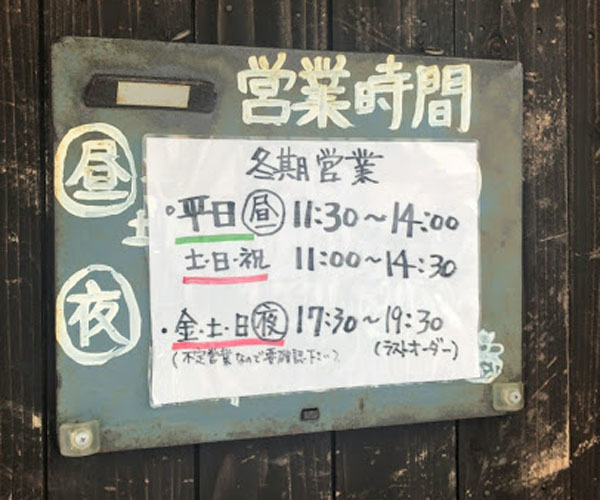 営業時間
昼
冬期営業
・平日 昼 11:30～14:00
土・日・祝 11:00～14:30
夜
・金・土・日 夜 17:30～19:30
(不定営業なので要確認下さい) (ラストオーダー)